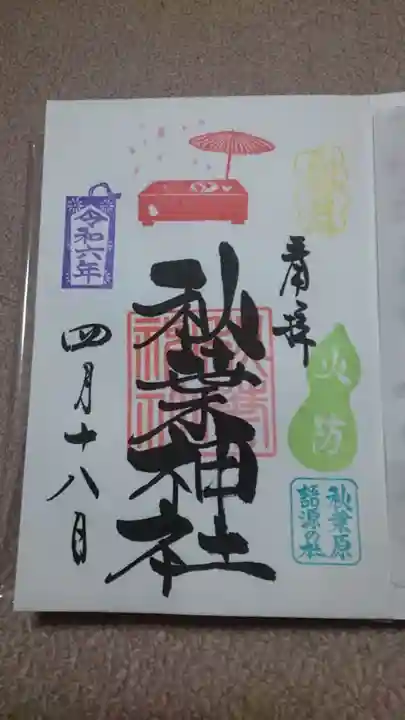 奉拝
火防
秋葉原
語源の社
秋葉神社
令和六年
四月十八日